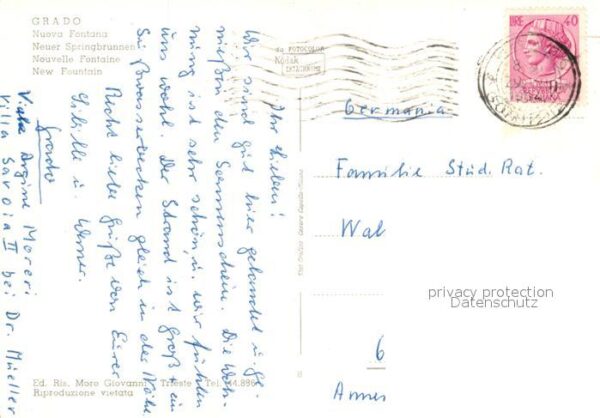 GRADO
Nuova Fontana
Neuer Springbrunnen
Nouvelle Fontaine
New Fountain
Ihr Lieben!
Wir sind gut hier gelandet u. ge-
nießen den Sonnenschein. Die Woh-
nung ist sehr schön, u. wir fühlen
uns wohl. Der Strand ist groß + ein
Süßwasserbecken gleich in der Nähe
Recht liebe Grüße von Eurer
u. Werner.
Grado
Viale Argine Moreri
Villa Savoia II bei Dr. Müeller
Ed. Ris. Moro Giovanni - Trieste - Tel.
Riproduzione vietata
FOTOCOLOR
Kodak
EKTACHROME
LIRE 40
Germania
Familie Stud. Rat.
Wal
6
Annes
privacy protection
Datenschutz